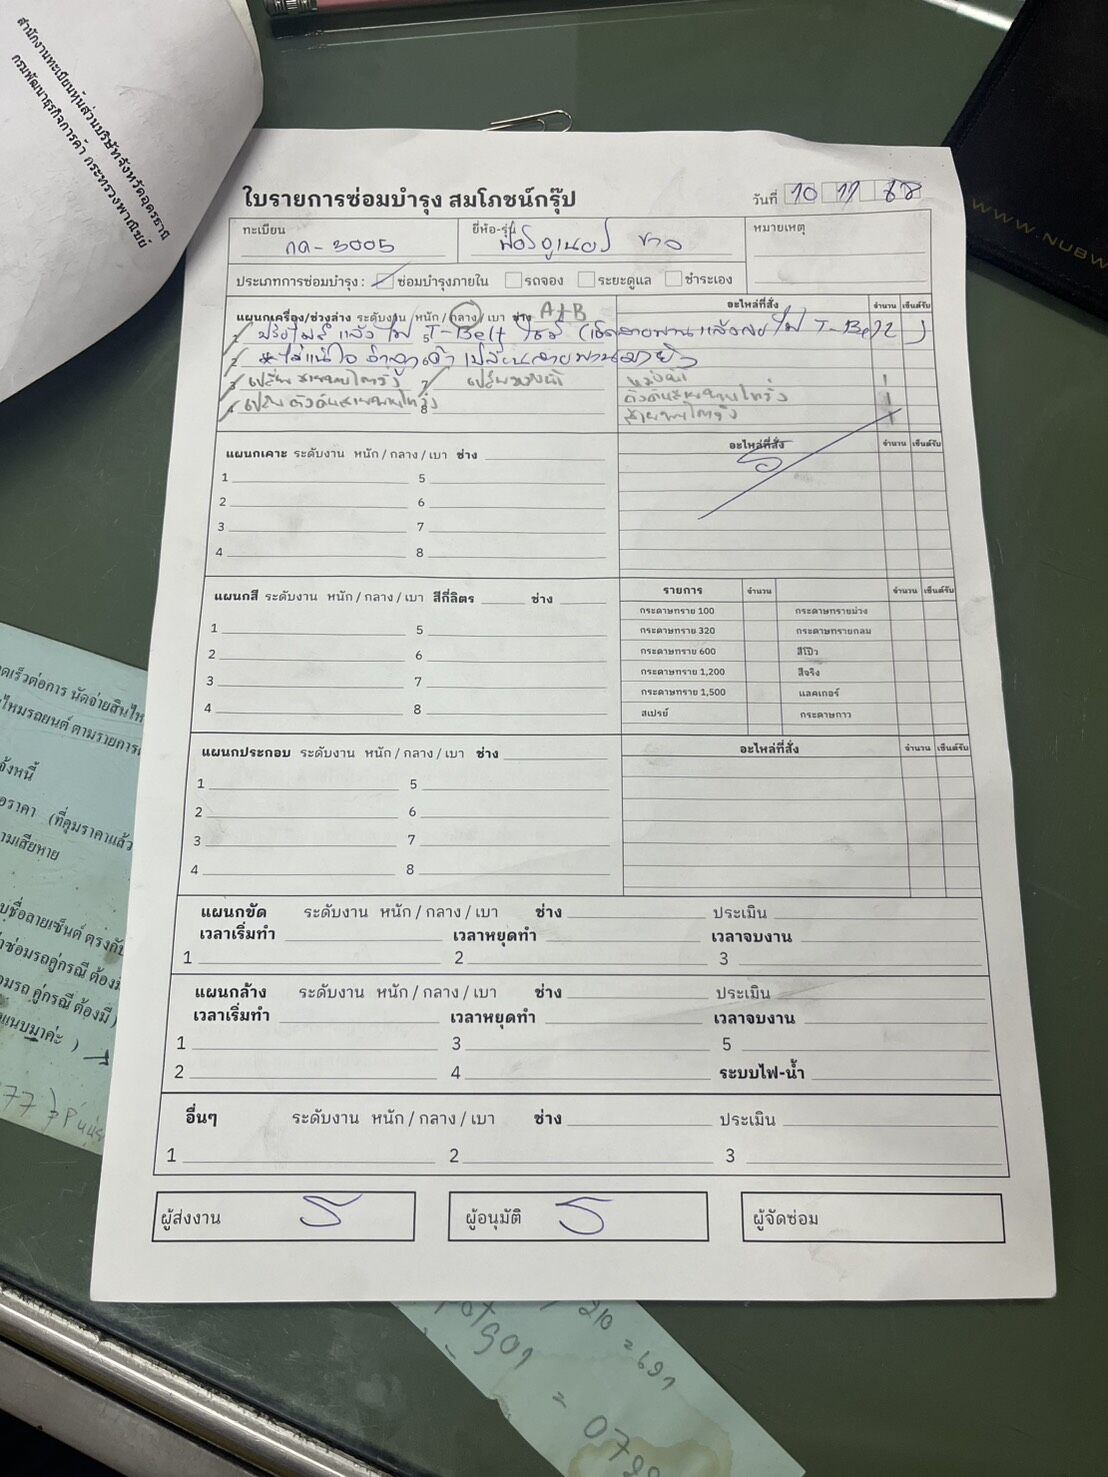 สำนักงานทะเบียนหุ้นส่วนบริษัทจังหวัดอุดรธานี
กรมพัฒนาธุรกิจการค้า กระทรวงพาณิชย์
WWW.NUBW
ใบรายการซ่อมบำรุง สมโภชน์กรุ๊ป
วันที่ 10 11 68
ทะเบียน กด-3005 ยี่ห้อ-รุ่น ฟอร์จูนเนอร์ ขาว หมายเหตุ
ประเภทการซ่อมบำรุง : ซ่อมบำรุงภายใน รถจอง ระยะดูแล ชำระเอง
แผนกเครื่อง/ช่วงล่าง ระดับงาน หนัก / กลาง / เบา ช่าง A+B อะไหล่ที่สั่ง จำนวน เซ็นต์รับ
1 ไมล์ แล้ว ไฟ T-Belt โชว์ (เช็คสายพาน แล้วลบไฟ T-Belt)
2 *ไม่แน่ใจ ว่าลูกค้า เปลี่ยนสายพานมายัง
3 เปลี่ยนสายพานไทม์มิ่ง 7 เปลี่ยนหม้อน้ำ หม้อน้ำ 1
4 เปลี่ยน ตัวดันสายพานไทม์มิ่ง 8 ตัวดันสายพานไทม์มิ่ง 1
สายพานไทม์มิ่ง 1
แผนกเคาะ ระดับงาน หนัก / กลาง / เบา ช่าง อะไหล่ที่สั่ง จำนวน เซ็นต์รับ
1 5
2 6
3 7
4 8
แผนกสี ระดับงาน หนัก / กลาง / เบา สีกี่ลิตร ช่าง รายการ จำนวน จำนวน เซ็นต์รับ
กระดาษทราย 100 กระดาษทรายม่วง
1 5 กระดาษทราย 320 กระดาษทรายกลม
2 6 กระดาษทราย 600 สีโป๊ว
3 7 กระดาษทราย 1,200 สีจริง
4 8 กระดาษทราย 1,500 แลคเกอร์
สเปรย์ กระดาษกาว
แผนกประกอบ ระดับงาน หนัก / กลาง / เบา ช่าง อะไหล่ที่สั่ง จำนวน เซ็นต์รับ
1 5
2 6
3 7
4 8
แผนกขัด ระดับงาน หนัก / กลาง / เบา ช่าง ประเมิน
เวลาเริ่มทำ เวลาหยุดทำ เวลาจบงาน
1 2 3
แผนกล้าง ระดับงาน หนัก / กลาง / เบา ช่าง ประเมิน
เวลาเริ่มทำ เวลาหยุดทำ เวลาจบงาน
1 3 5
2 4 ระบบไฟ-น้ำ
อื่นๆ ระดับงาน หนัก / กลาง / เบา ช่าง ประเมิน
1 2 3
ผู้ส่งงาน ผู้อนุมัติ ผู้จัดซ่อม
ดเร็วต่อการ นัดจ่ายสินไห
ไหมรถยนต์ ตามรายการ
จ้งหนี้
อราคา (ที่คุมราคาแล้ว
ามเสียหาย
บชื่อลายเซ็นต์ ตรงกับ
าซ่อมรถคู่กรณี ต้องมี
อมรถ คู่กรณี ต้องมี)
แนบมาค่ะ )
77
210
= 691
901
= 0799